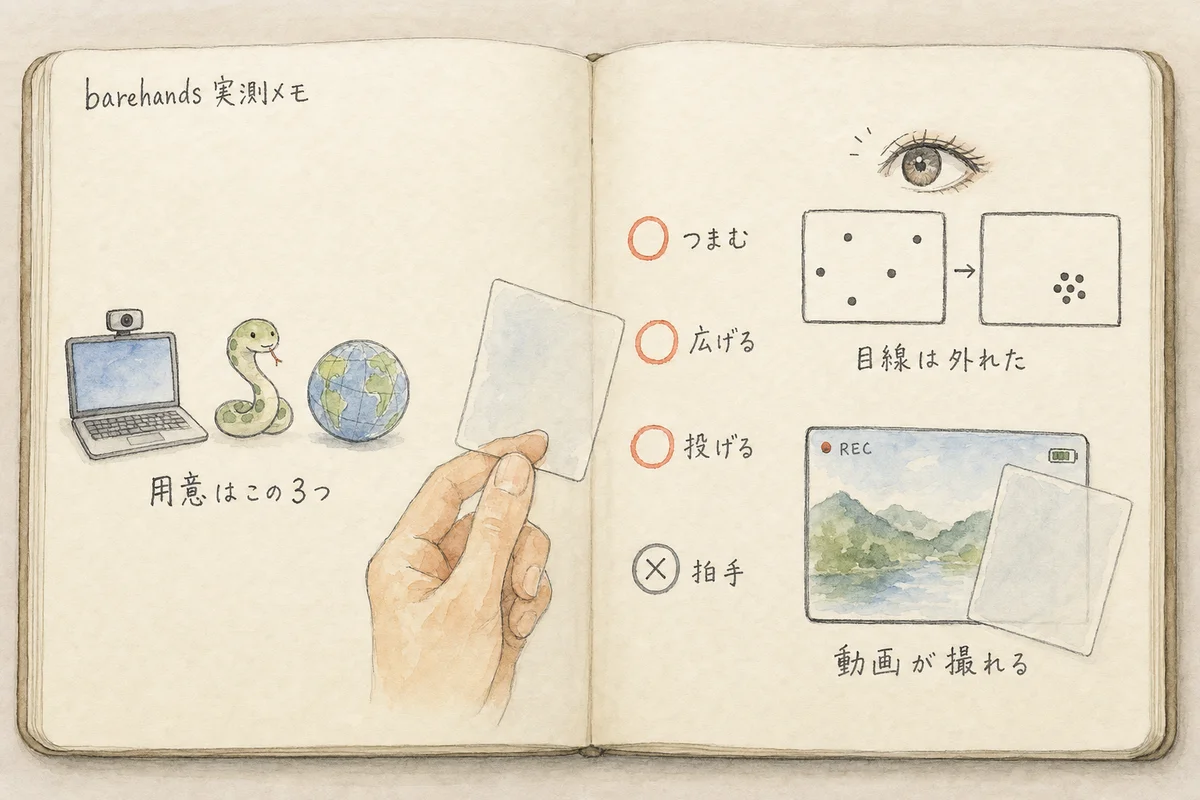 barehands 実測メモ
用意はこの3つ
つまむ
広げる
投げる
拍手
目線は外れた
REC
動画が撮れる